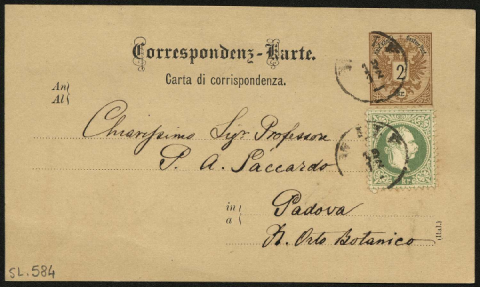 Correspondenz-Karte.
Carta di corrispondenza.
2
An
Al
Chiarissimo Sigr Professore
P. A. Saccardo
in
a
Padova
R. Orto Botanico
(Ital.)
SL. 584